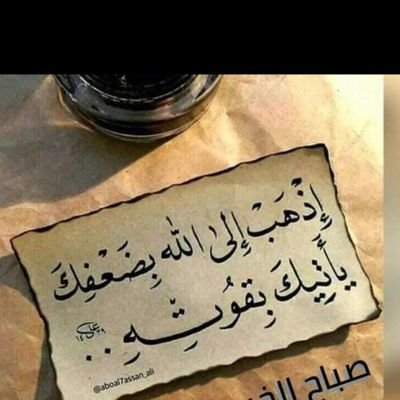 إِذْهَبْ إِلىٰ اللهِ بِضَعْفِكَ
يَأْتِيكَ بِقُوَّتِهِ ..
@aboal7assan_ali
صباح